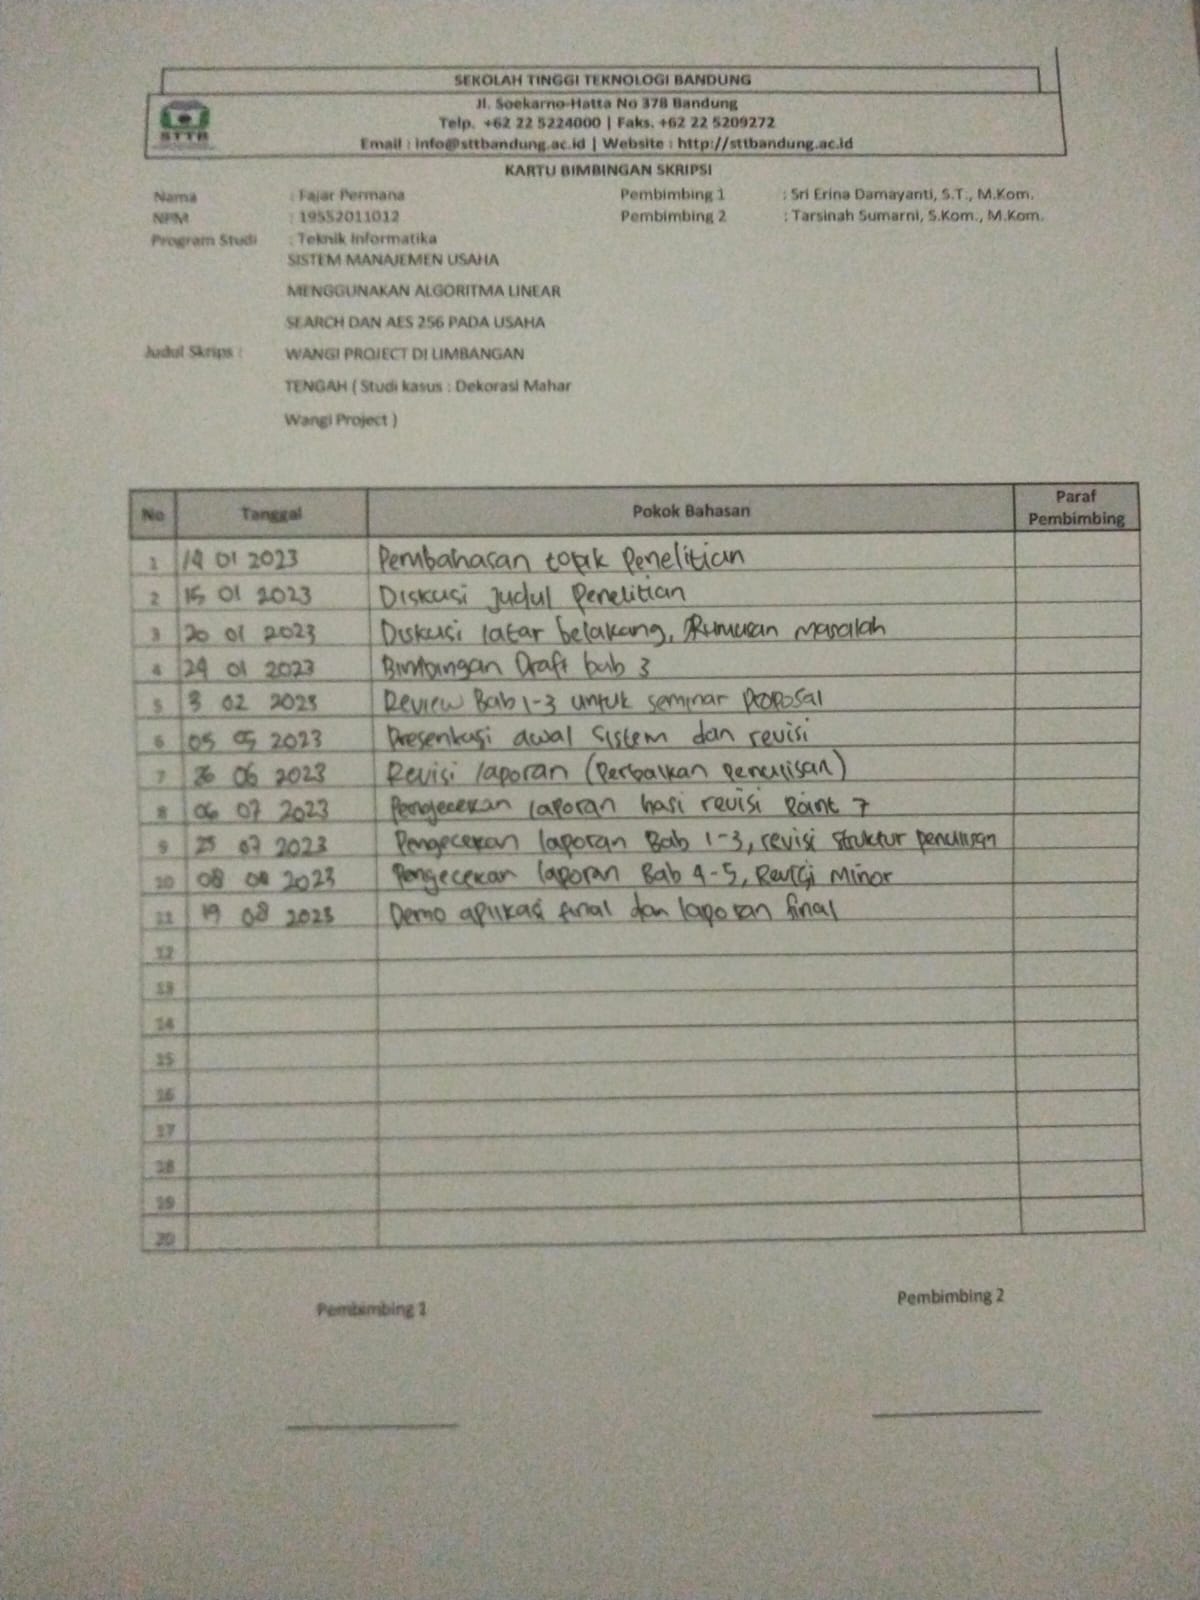 SEKOLAH TINGGI TEKNOLOGI BANDUNG
Jl. Soekarno-Hatta No 378 Bandung
Telp. +62 22 5224000 | Faks. +62 22 5209272
Email : info@sttbandung.ac.id | Website : http://sttbandung.ac.id
STTB
KARTU BIMBINGAN SKRIPSI
Nama : Fajar Permana Pembimbing 1 : Sri Erina Damayanti, S.T., M.Kom.
NPM : 19552011012 Pembimbing 2 : Tarsinah Sumarni, S.Kom., M.Kom.
Program Studi : Teknik Informatika
SISTEM MANAJEMEN USAHA
MENGGUNAKAN ALGORITMA LINEAR
SEARCH DAN AES 256 PADA USAHA
Judul Skrips : WANGI PROJECT DI LIMBANGAN
TENGAH ( Studi kasus : Dekorasi Mahar
Wangi Project )
No Tanggal Pokok Bahasan Paraf Pembimbing
1 14 01 2023 Pembahasan topik Penelitian
2 15 01 2023 Diskusi judul Penelitian
3 20 01 2023 Diskusi latar belakang, Rumusan Masalah
4 24 01 2023 Bimbingan Draft bab 3
5 3 02 2023 Review Bab 1-3 untuk seminar proposal
6 05 05 2023 Presentasi awal sistem dan revisi
7 26 06 2023 Revisi laporan (Perbaikan Penulisan)
8 06 07 2023 Pengecekan laporan hasi revisi Point 7
9 25 07 2023 Pengecekan laporan Bab 1-3, revisi struktur penulisan
10 08 08 2023 Pengecekan laporan Bab 4-5, Revisi Minor
11 19 08 2023 Demo aplikasi final dan laporan final
12
13
14
15
16
17
18
19
20
Pembimbing 1 Pembimbing 2